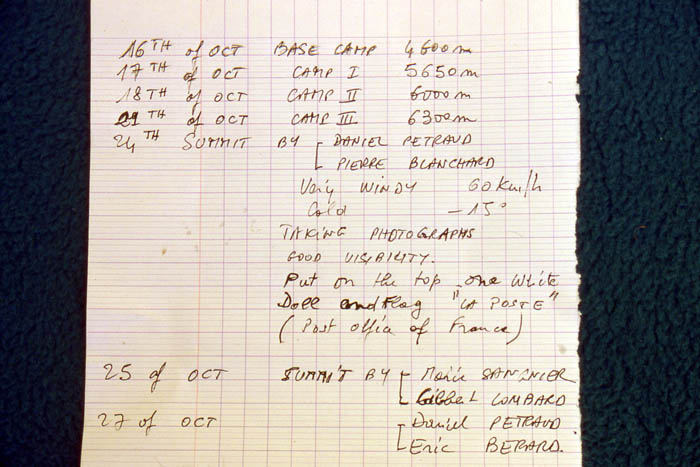 16TH of OCT BASE CAMP 4600m
17TH of OCT CAMP I 5650m
18TH of OCT CAMP II 6000m
21TH of OCT CAMP III 6300m
24TH SUMMIT BY DANIEL PETRAUD
PIERRE BLANCHARD
Very WINDY 60 Km/h
Cold -15°
TAKING PHOTOGRAPHS
GOOD VISIBILITY.
Put on the top one White
Doll and Flag "LA POSTE"
(Post office of France)
25 of OCT SUMMIT BY
LOMBARD
27 of OCT Daniel PETRAUD
Eric BERARD.